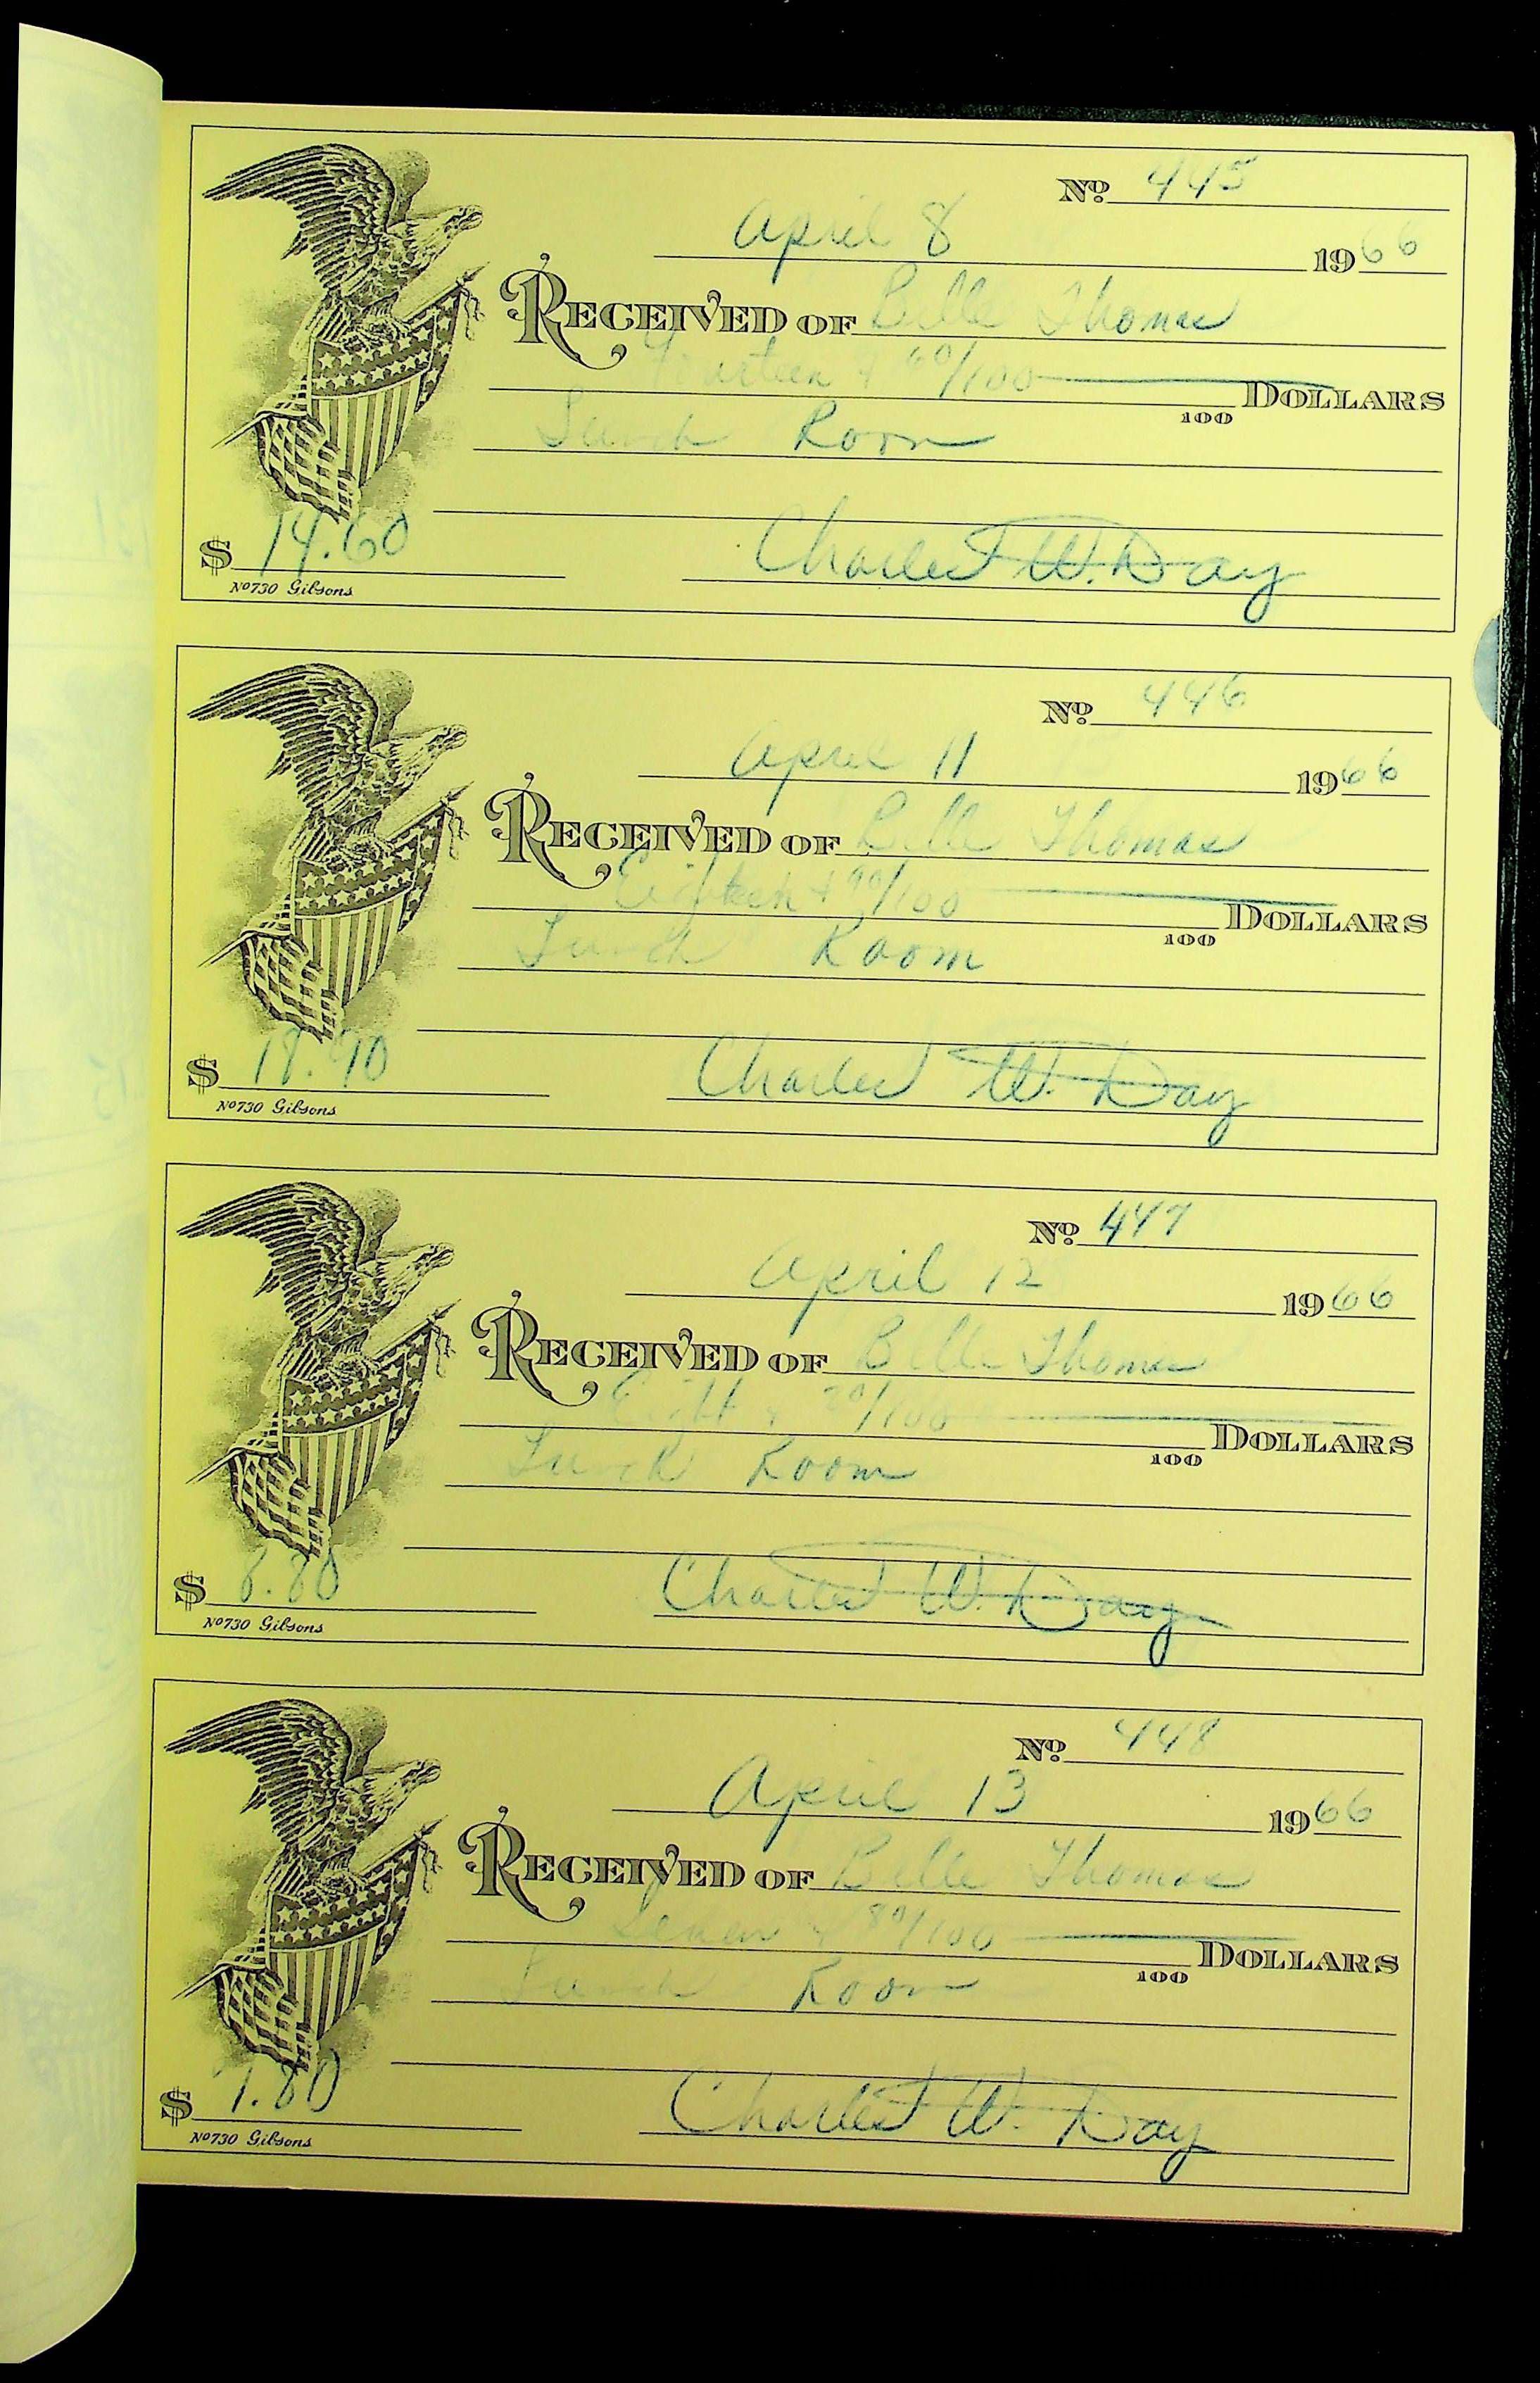 No. 445
April 8 1966
RECEIVED OF Belle Thomas
Fourteen & 60/100 DOLLARS
100
Lunch Room
$ 14.60
Charles W. Day
No 730 Gibsons
No. 446
April 11 1966
RECEIVED OF Belle Thomas
Eighteen + 90/100 DOLLARS
100
Lunch Room
$ 18.90
Charles W. Day
No 730 Gibsons
No. 447
April 12 1966
RECEIVED OF Belle Thomas
Eight & /100 DOLLARS
100
Lunch Room
$ 8.80
Charles W. Day
No 730 Gibsons
No. 448
April 13 1966
RECEIVED OF Belle Thomas
Seven & 80/100 DOLLARS
100
Lunch Room
$ 7.80
Charles W. Day
No 730 Gibsons